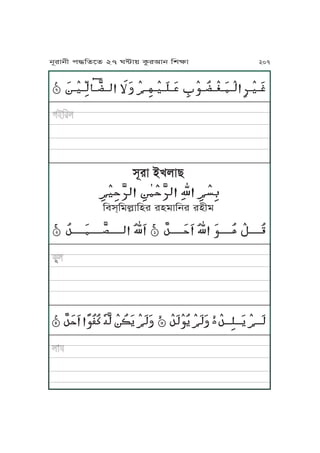 নূরানী পদ্ধতিতে ২৭ ঘণ্টায় কুরআন শিক্ষা ২০৭
غَيْرِ الْمَغْضُوْبِ عَلَيْهِمْ وَلَا الضَّآلِّيْنَ ۞
গইরিল
সূরা ইখলাছ
بِسْمِ اللهِ الرَّحْمٰنِ الرَّحِيْمِ
বিস্‌মিল্লাহির রহমানির রহীম
قُـــلْ هُـــوَ اللهُ اَحَـــدٌ ۞ اَللهُ الـــصَّـــمَـــدُ ۞
কুল
لَـــمْ يَـــلِـــدْ ۙ وَلَمْ يُوْلَدْ ۞ وَلَمْ يَكُنْ لَّهٗ كُفُوًا اَحَدٌ ۞
লাম